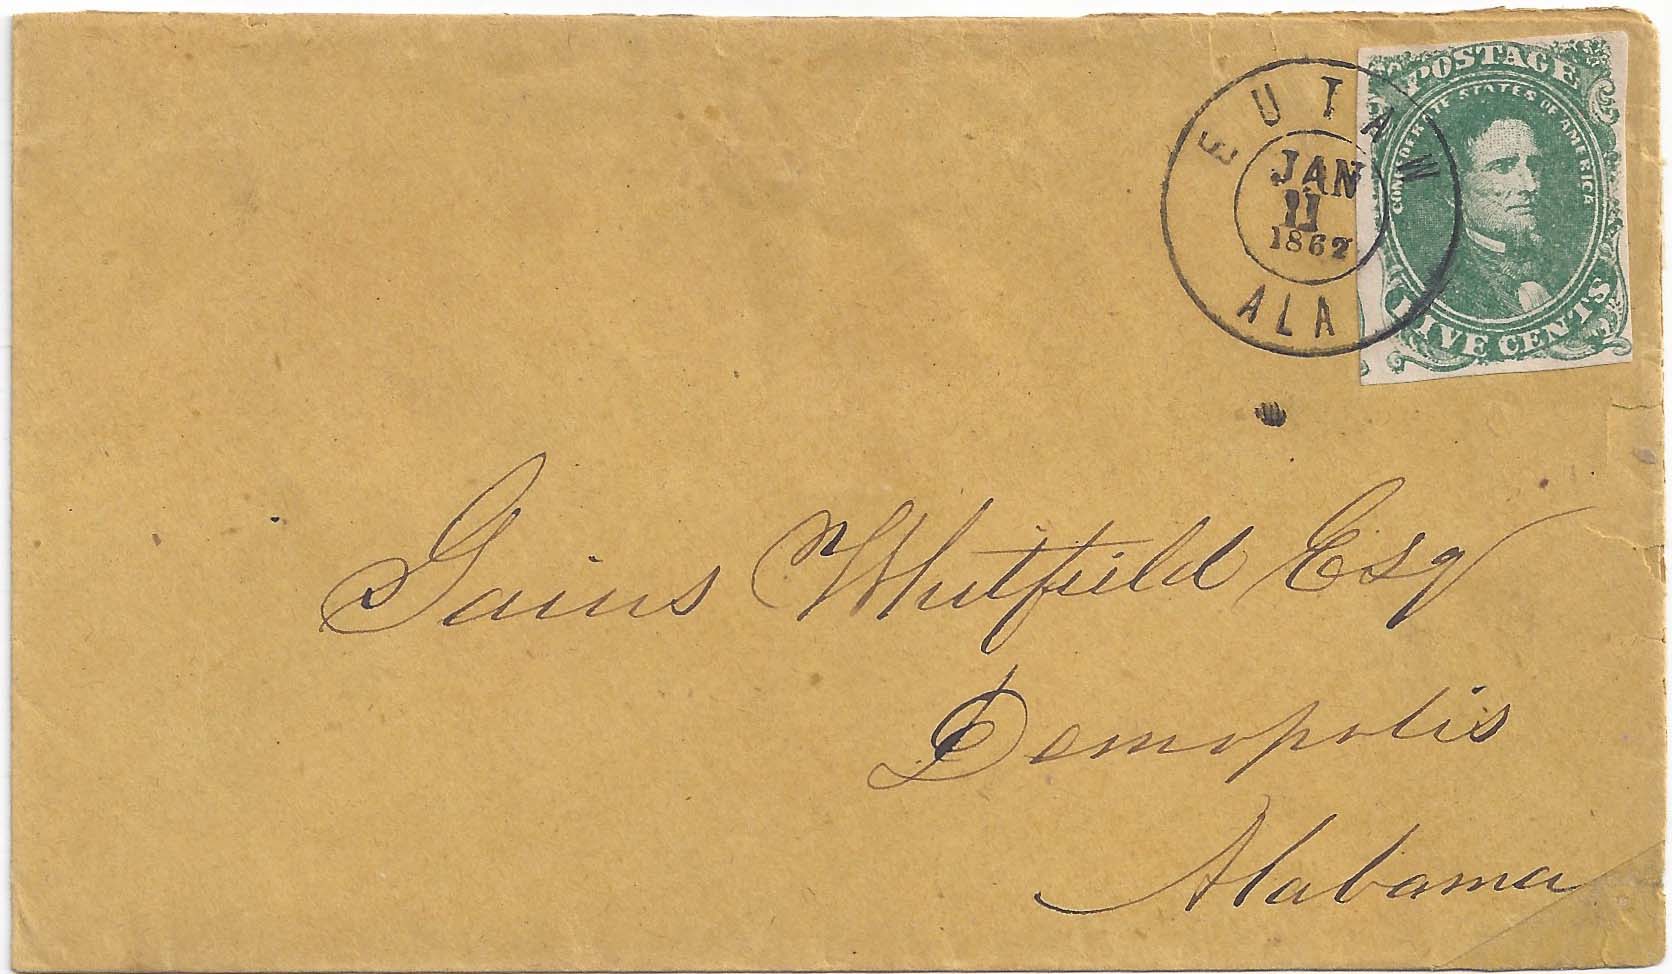 POSTAGE
CONFEDERATE STATES OF AMERICA
FIVE CENTS
EUTAW
JAN
11
1862
ALA
Gains Whitfield Esq
Demopolis
Alabama